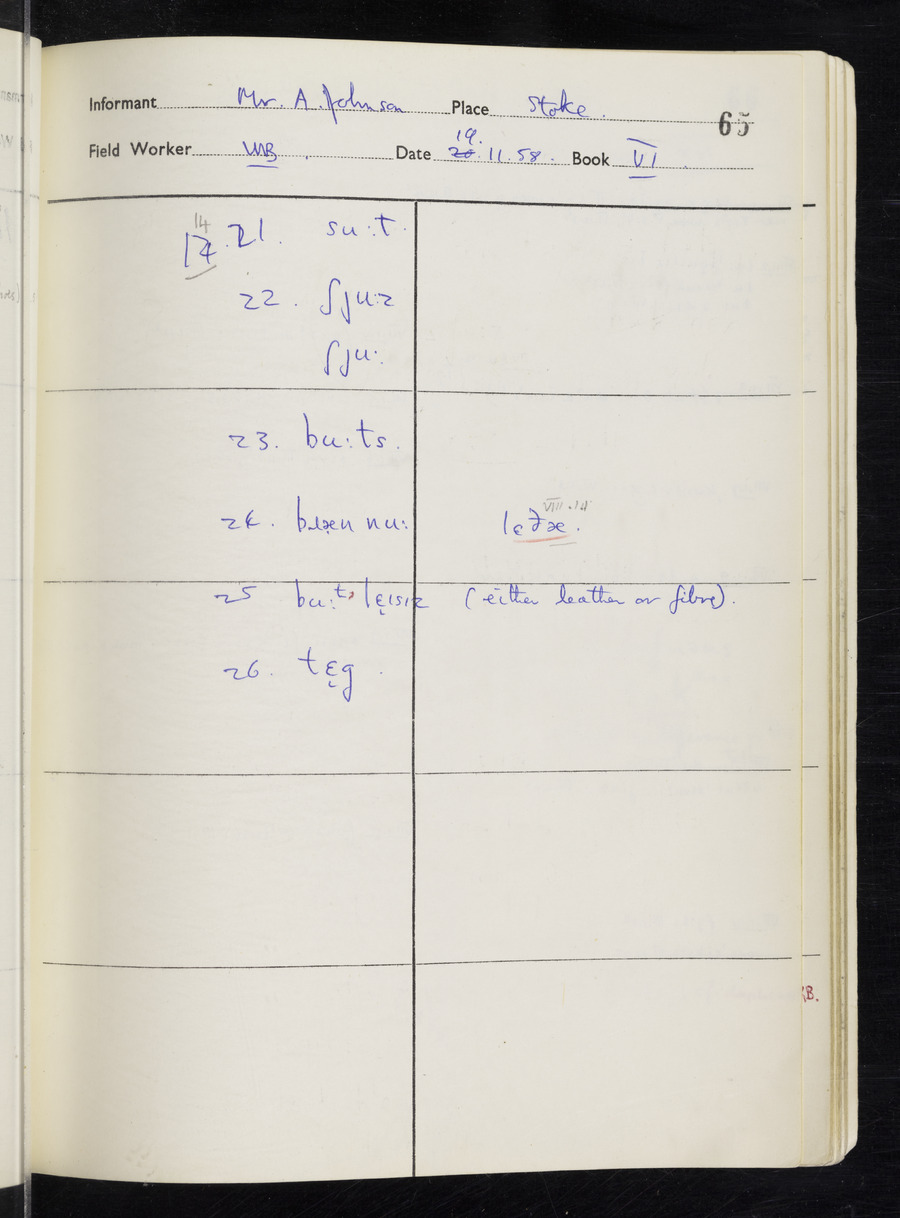 Informant Mr. A. Johnson Place Stoke. 65
Field Worker WB. Date 19. 20. 11. 58. Book VI
14
17. 21. su:t.
22. ʃju:z
ʃju:
23. bu:ts.
24. bɹæn nu:
VIII.14
lɛðə.
25 bu:t lɛɪsɪz (either leather or fibre).
26. tɛ̨g.